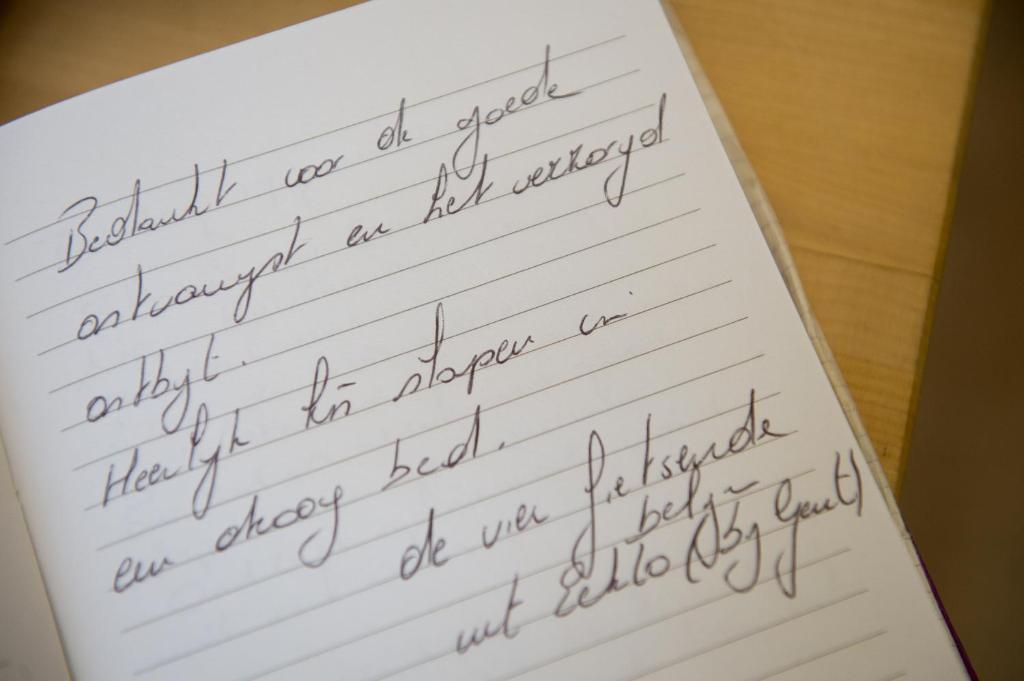 Bedankt voor de goede
ontvangst en het verzorgd
ontbyt.
Heerlyk slapen in
een droog bed.
de vier fietsende
belgen
uit Eeklo (by Gent)